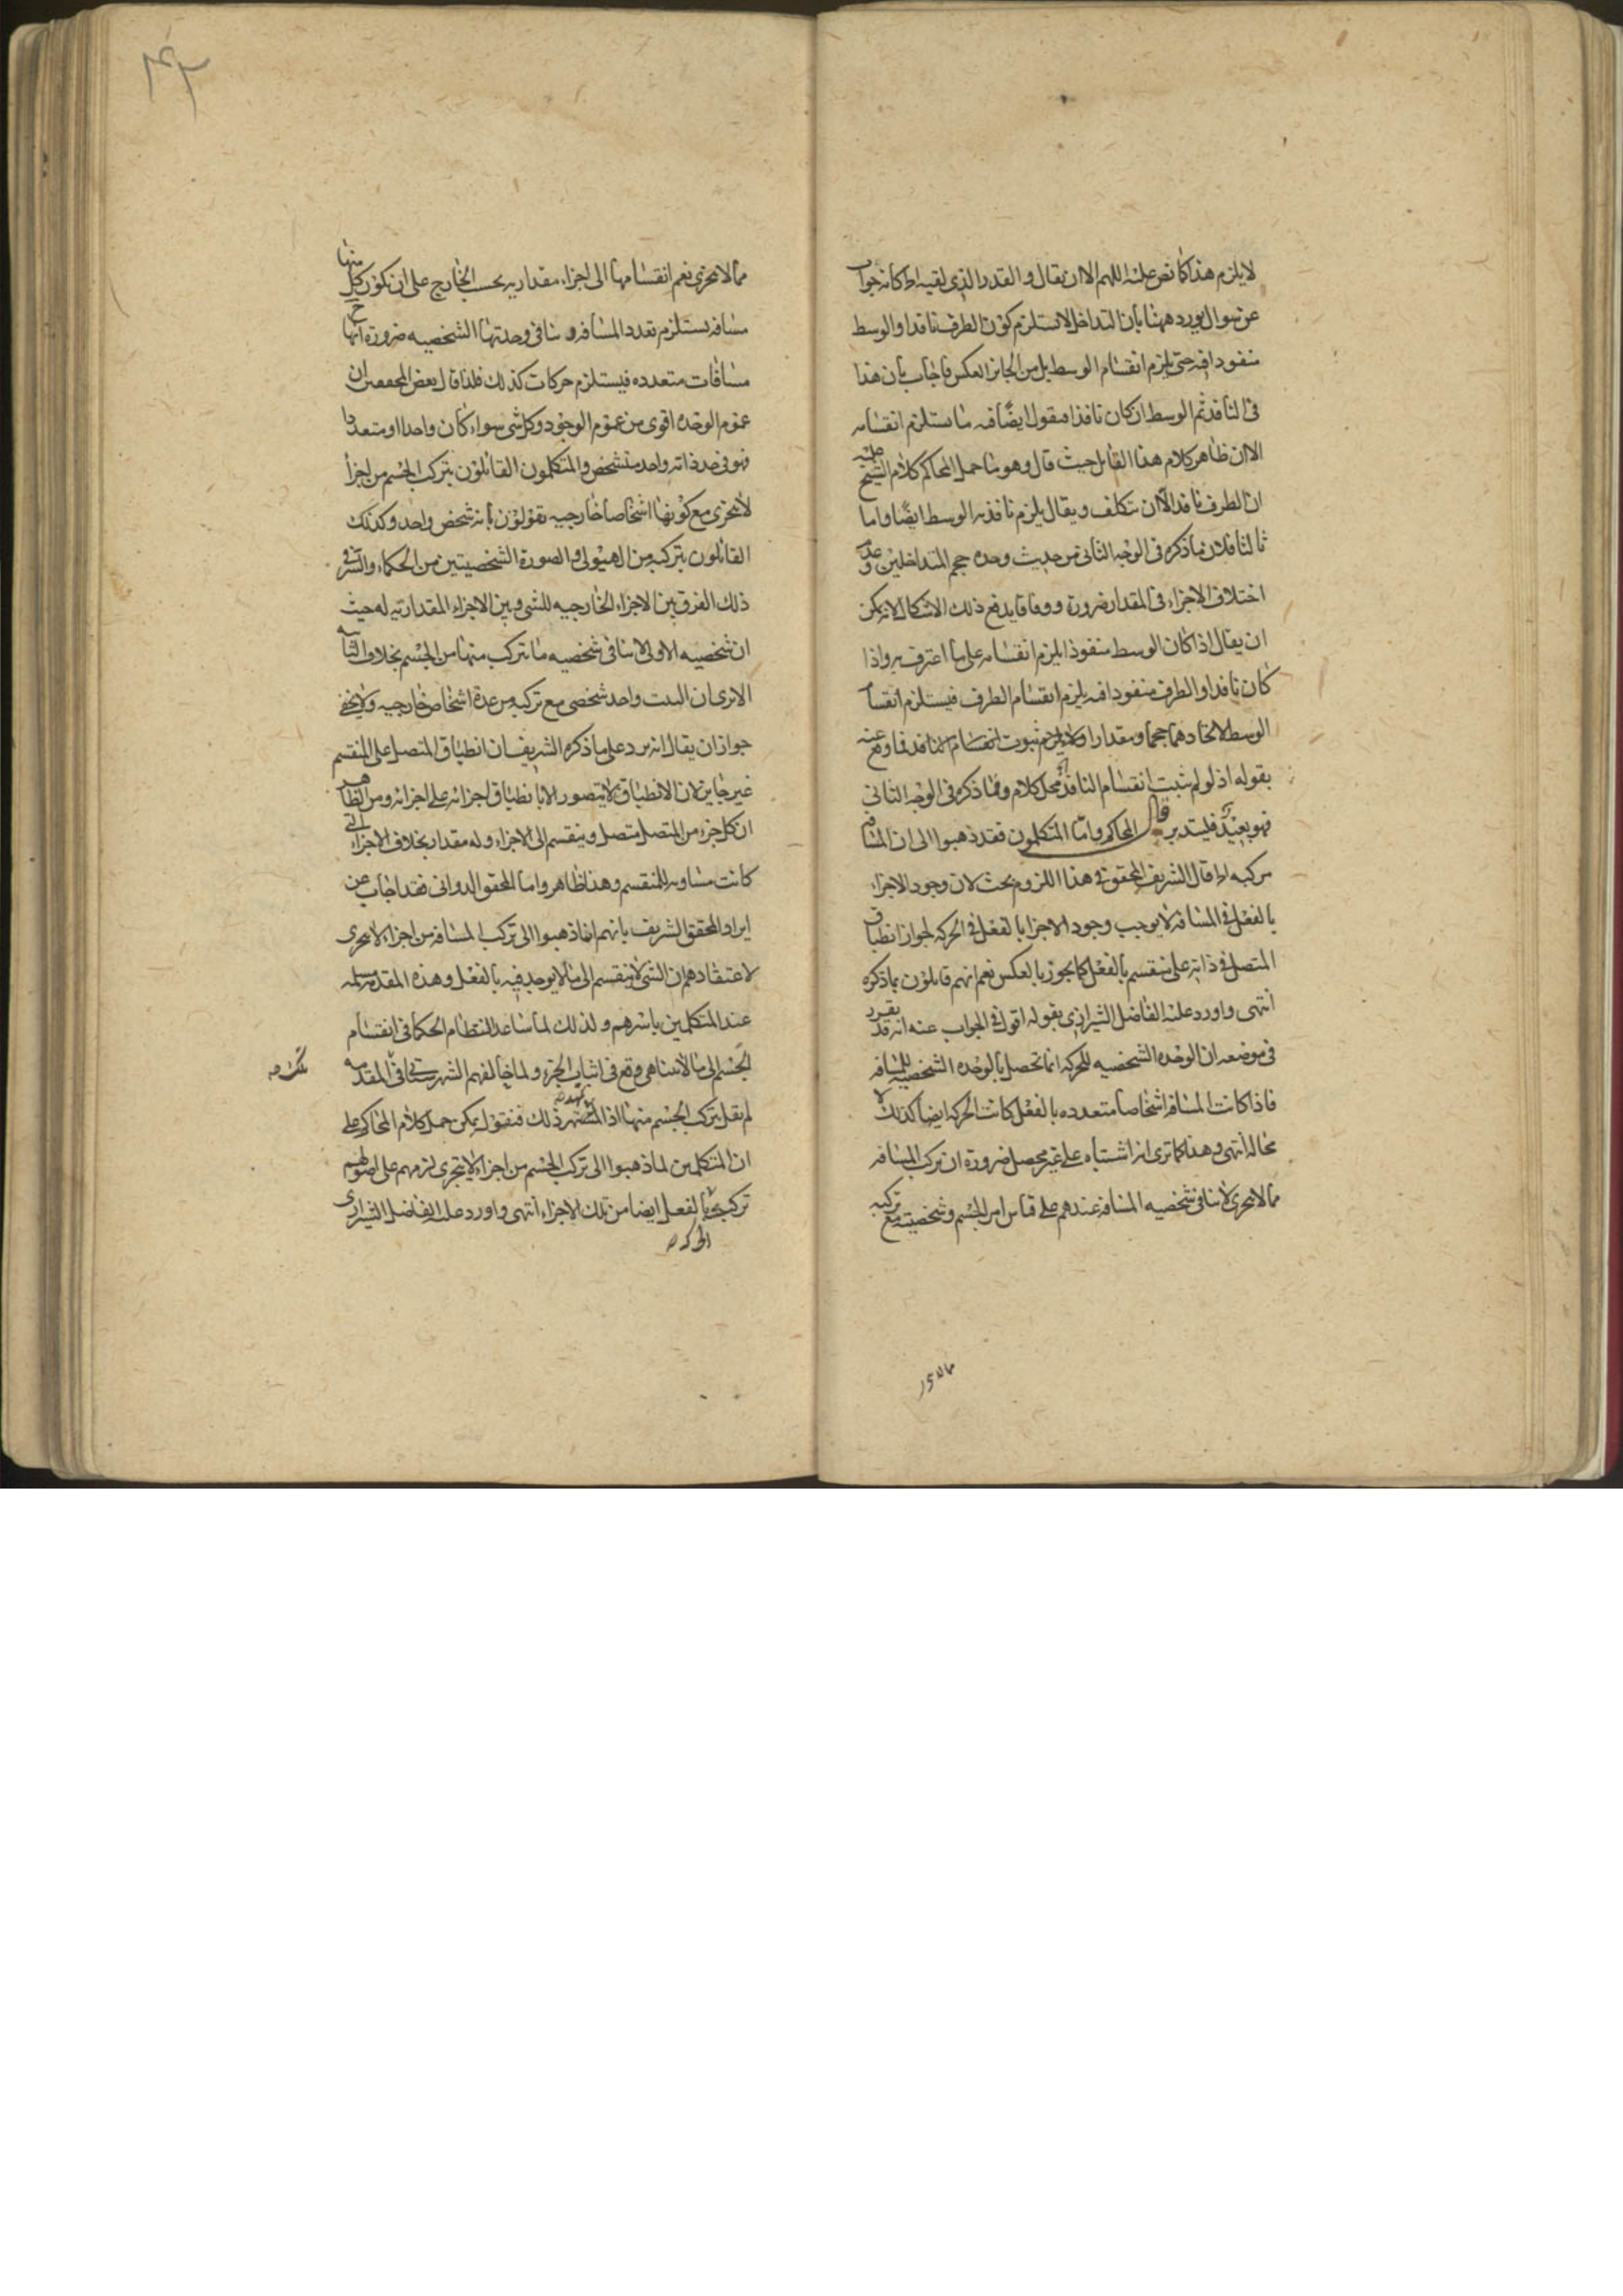 لا يلزم هذا كما نص عليه اللهم الا ان يقال والقدر الذى لقيه اه كانه جواب
عن سوال يورد ههنا بان التداخل لا يستلزم كون الطرف نافدا والوسط
منفودا فيه حتى يلزم انقسام الوسط بل من الجايز العكس فاجاب بان هذا
فى النافد ثم الوسط ان كان نافذا فنقول ايضا فيه ما يستلزم انقسامه
الا ان ظاهر كلام هذا القايل حيث قال وهو ما حمل المحاكم كلام الشيخ عليه
ان الطرف نافد الا ان يتكلف ويقال يلزم نافذيه الوسط ايضا واما
ثالثا فلان ما ذكره فى الوجه الثانى من حديث وحده حجم المتداخلين وعدم
اختلاف الاجزاء فى المقدار ضرورة ووفاقا يدفع ذلك الاشكال لانه يمكن
ان يقال اذا كان الوسط منفوذا يلزم انقسامه على ما اعترف به واذا
كان نافدا والطرف منفودا فيه يلزم انقسام الطرف فيستلزم انقسام
الوسط لاتحادهما حجما ومقدارا ثبوت انقسام النافد فما وقع عنه
بقوله اذ لو لم يثبت انقسام النافد محل كلام وفما ذكره فى الوجه الثانى
فهو بعيد فليتدبر قال المحاكم واما المتكلمون فقد ذهبوا الى ان المسافه
مركبه اه قال الشريف المحقق فى هذا اللزوم بحث لان وجود الاجزاء
بالفعل فى المسافه لا يوجب وجود الاجزا بالفعل فى الحركه لجواز انطباق
المتصل فى ذاته على منقسم بالفعل كما يجوز بالعكس نعم انهم قايلون بما ذكره
انتهى واورد عليه الفاضل الشيرازى بقوله اقول فى الجواب عنه انه قد تقرر
فى موضعه ان الوحده الشخصيه للحركه انما تحصل بالوحده الشخصيه للمسافه
فاذا كانت المسافه اشخاصا متعدده بالفعل كانت الحركه ايضا كذلك لا
محاله انتهى وهذا كما ترى انه اشتباه على غير محصل ضرورة ان تركب المسافه
مما لا يتجزى لا ينافى شخصيه المسافه عندهم على قياس امر الجسم وشخصيته مع تركبه
مما لا يتجزى
مما لا يتجزى نعم انقسامها الى اجزاء مقداريه بحسب الخارج على ان يكون كل منها
مسافه يستلزم تعدد المسافه و ينافى وحدتها الشخصيه ضرورة انها ح
مسافات متعدده فيستلزم حركات كذلك فلذا قال بعض المحققين ان
عموم الوحده اقوى من عموم الوجود وكل شى سواء كان واحدا او متعددا
فهو فى حد ذاته واحد متشخص والمتكلمون القائلون بتركب الجسم من اجزأ
لا يتجزى مع كونها اشخاصا خارجيه يقولون بانه شخص واحد وكذلك
القائلون بتركبه من الهيولى والصورة الشخصيتين من الحكماء والسر فى
ذلك الفرق بين الاجزاء الخارجيه للشى وبين الاجزاء المقداريه له حيث
ان شخصيه الاولى لا ينافى شخصيه ما يتركب منها من الجسم بخلاف الثانيه
الا ترى ان البيت واحد شخصى مع تركبه من عدة اشخاص خارجيه ولا يخفى
جواز ان يقال انه يرد على ما ذكره الشريف ان انطباق المتصل على المنقسم
غير جايز لان الانطباق لا يتصور الا بانطباق اجزائه على اجزائه ومن الظاهر
ان كل جزء من المتصل متصل وينقسم الى الاجزاء وله مقدار بخلاف الاجزاء التى
كانت مساويه للمنقسم وهذا ظاهر واما المحقق الدوانى فقد اجاب عن
ايراد المحقق الشريف بانهم انما ذهبوا الى تركب المسافه من اجزاء لا يتجزى
لاعتقادهم ان الشى لا ينقسم الى ما لا يوجد فيه بالفعل وهذه المقدمه مسلمه
عند المتكلمين باسرهم ولذلك لما ساعد النظام الحكما فى انقسام
الجسم الى ما لا يتناهى وقع فى اثبات الجزء ولما خالفهم الشهرستانى فى المقدمه
لم يقل بتركب الجسم منها اذا تمهد ذلك فنقول يمكن حمل كلام المحاكم على
ان المتكلمين لما ذهبوا الى تركب الجسم من اجزاء لا يتجزى لزمهم على اصولهم
تركب بالفعل ايضا من تلك الاجزاء انتهى واورد عليه الفاضل الشيرازى
الحركه